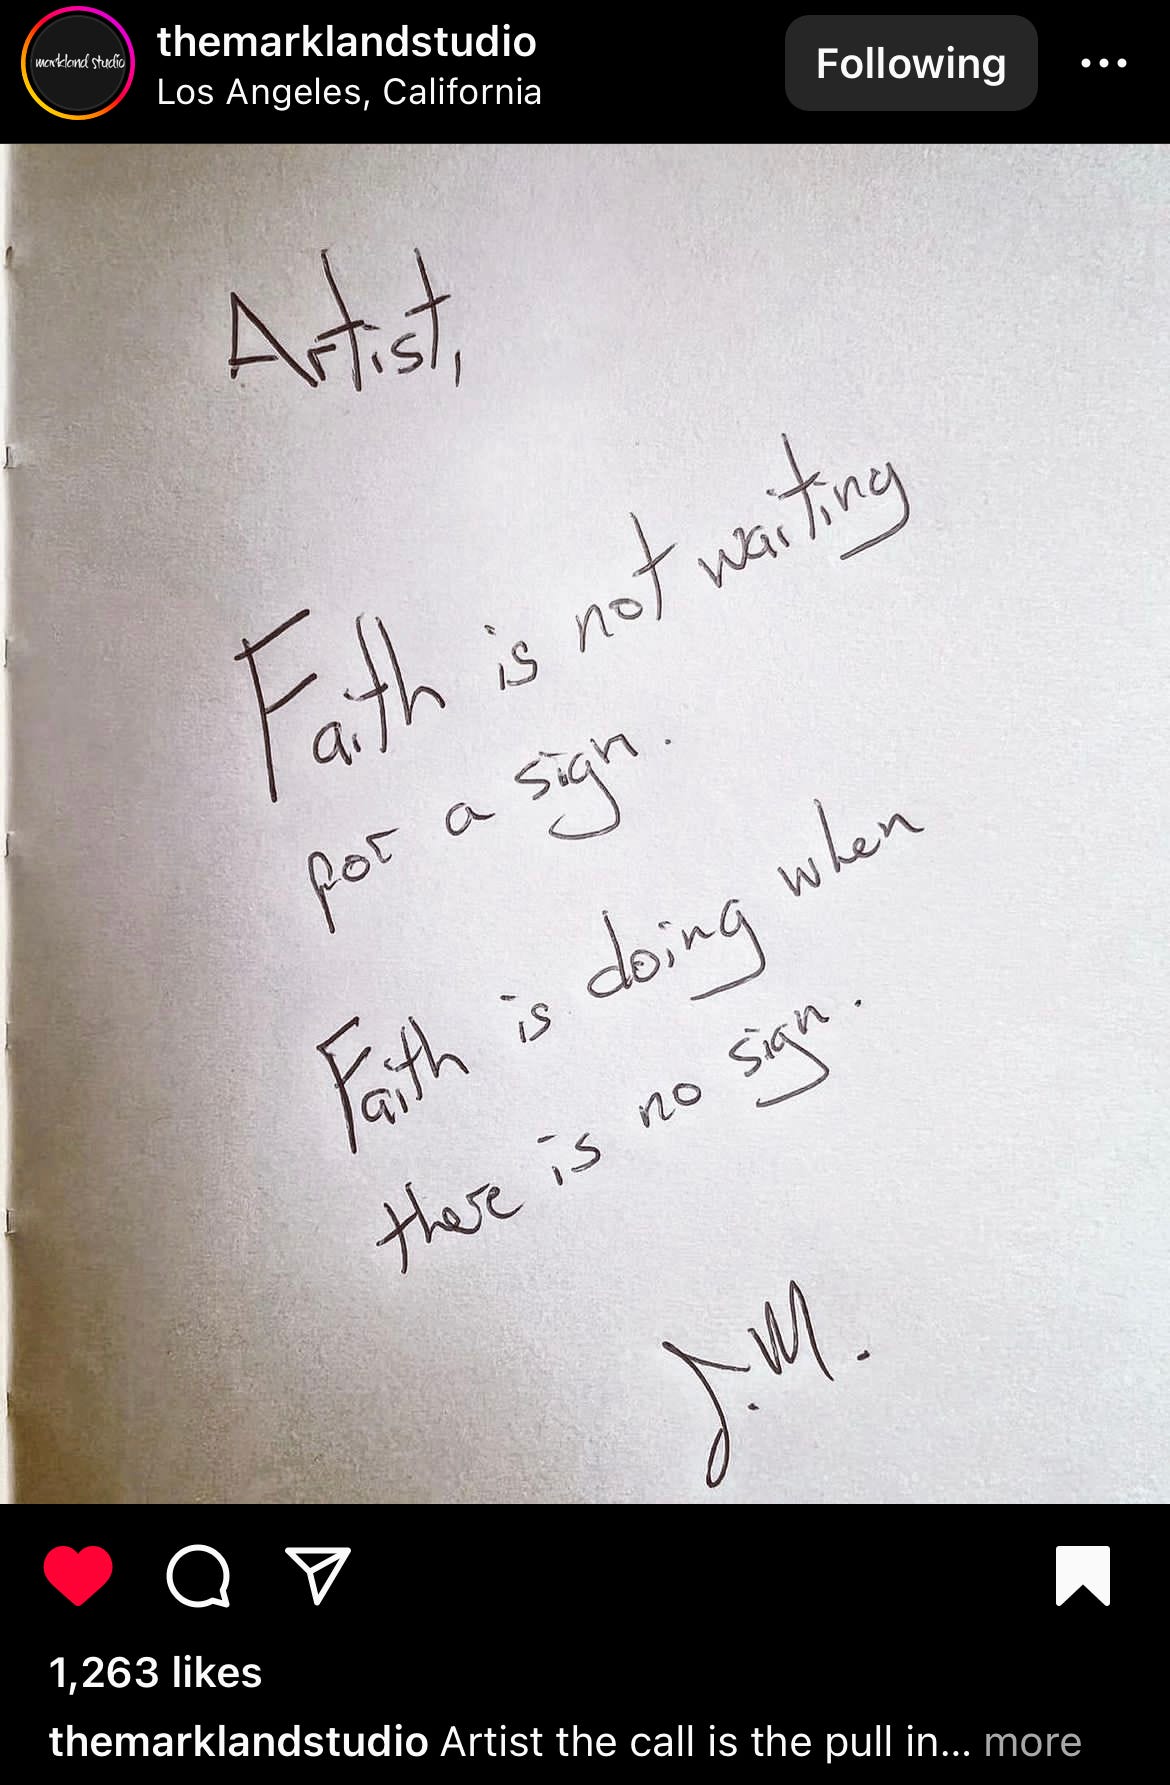 markland studio
themarklandstudio
Los Angeles, California
Following
Artist,
Faith is not waiting
for a sign.
Faith is doing when
there is no sign.
J.M.
1,263 likes
themarklandstudio Artist the call is the pull in... more